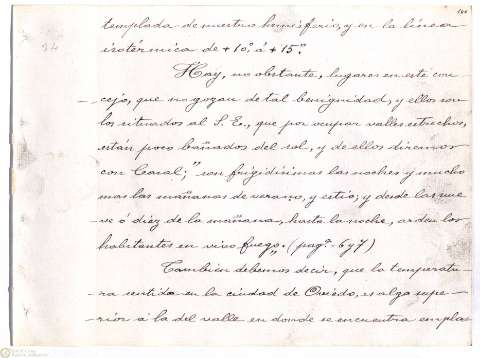 templada de nuestro hemisferio, y en la línea
isotérmica de +10° á +15°.
Hay, no obstante, lugares en este con-
cejo, que no gozan de tal benignidad, y ellos son
los situados al S. E., que por ocupar valles estrechos,
están poco bañados del sol, y de ellos diremos
con Casal; "son frigidísimas las noches y mucho
mas las mañanas de verano, y estío; y desde las nue-
ve ó diez de la mañana, hasta la noche, arden los
habitantes en vivo fuego". (pagª. 6 y 7)
Tambien debemos decir, que la temperatu-
ra sentida en la ciudad de Oviedo, es algo supe-
rior á la del valle en donde se encuentra empla-